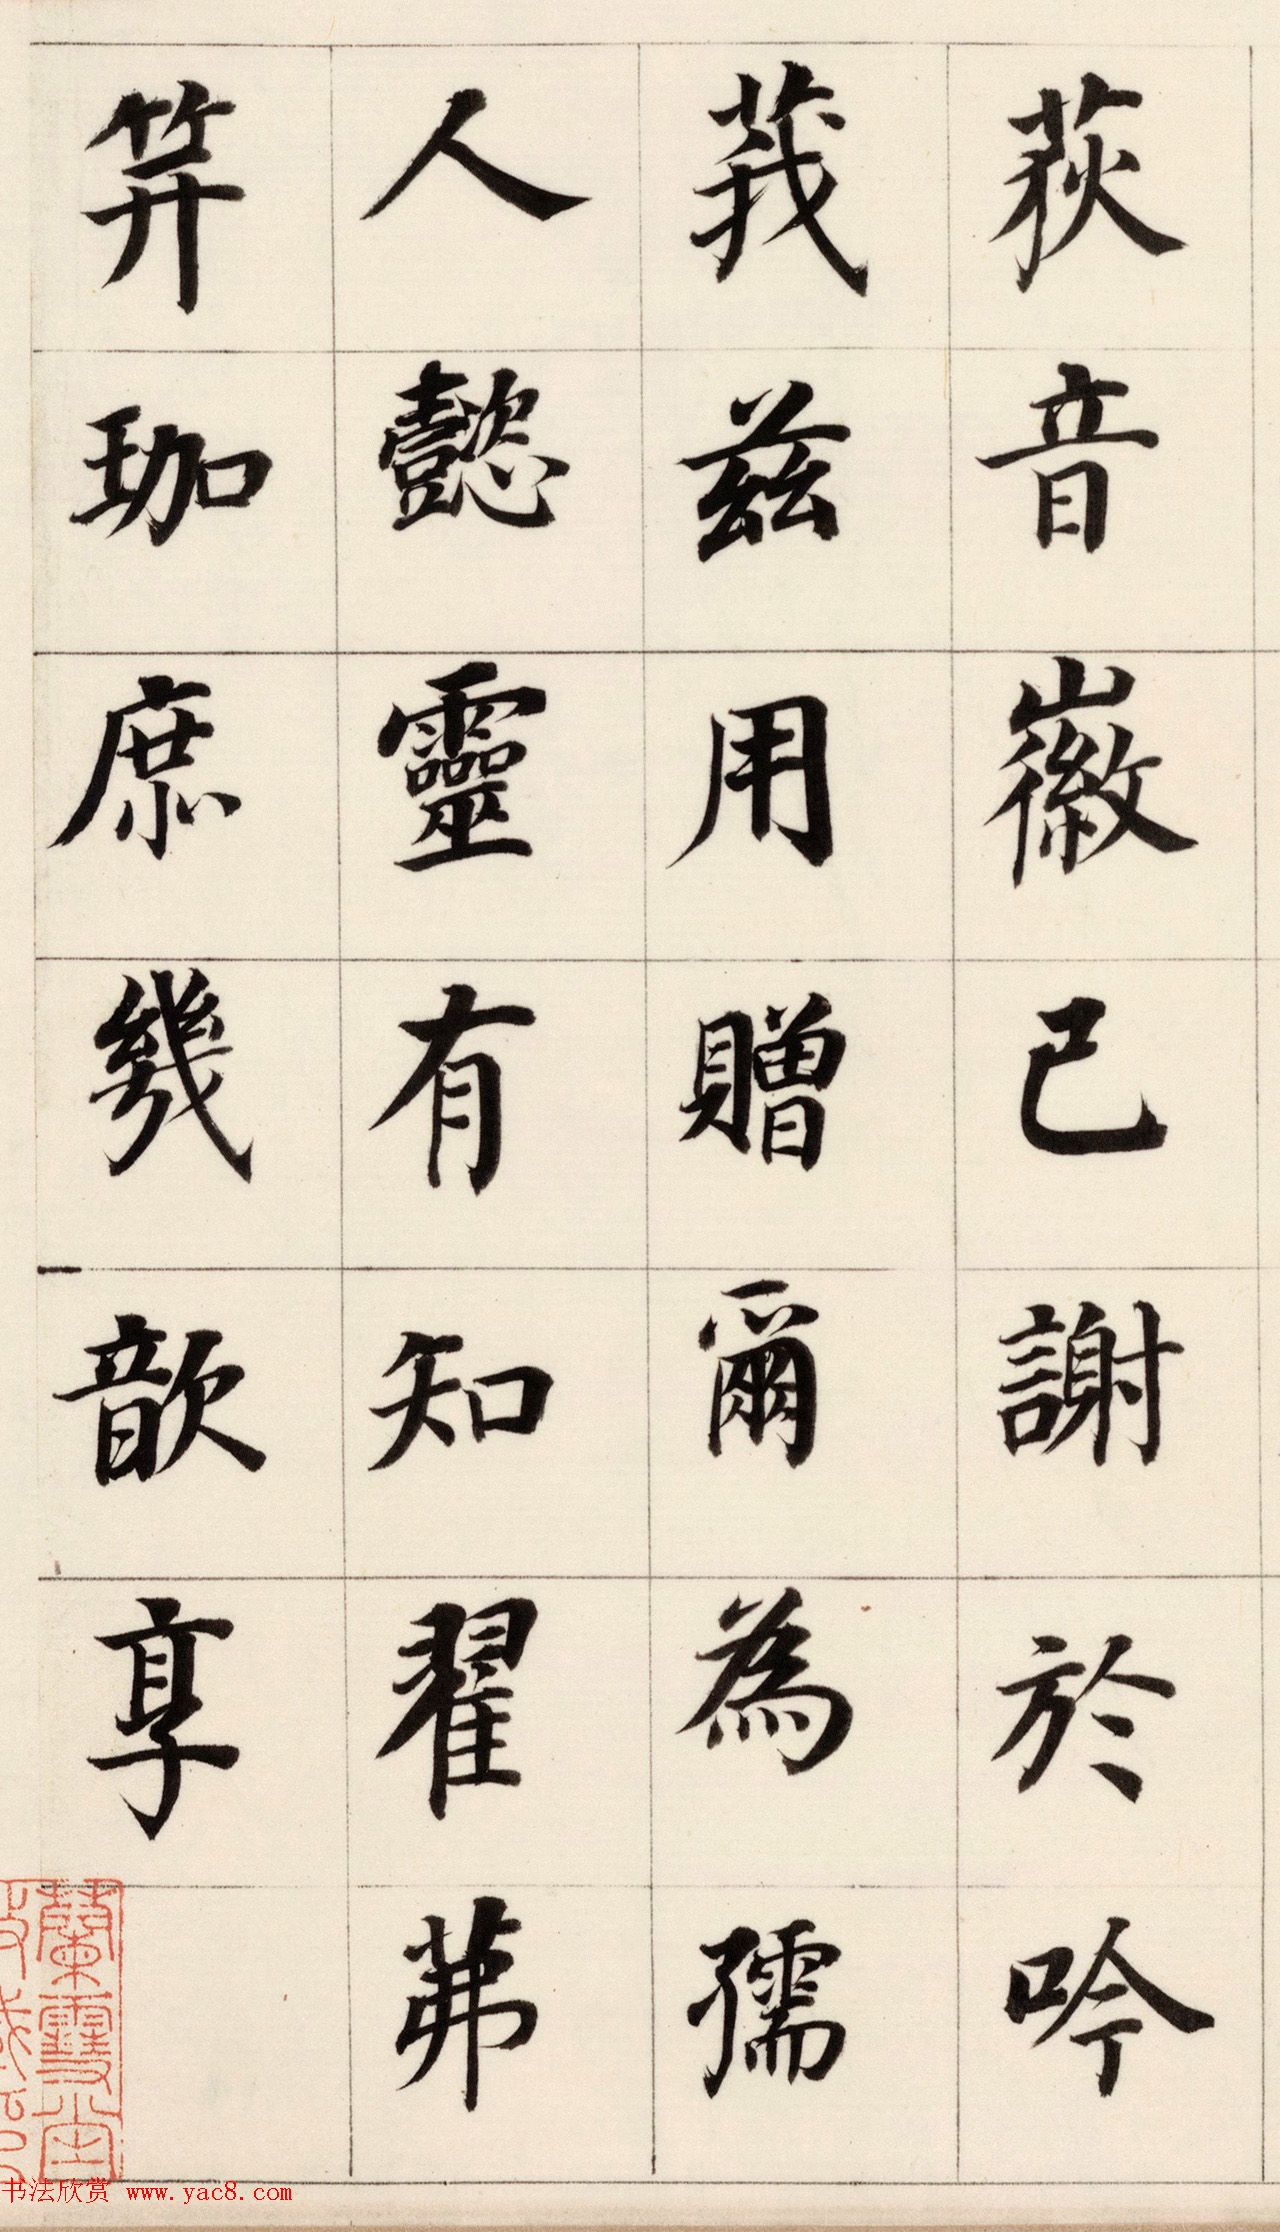 荻音徽已謝於吟
莪兹用贈爾為孺
人懿靈有知翟茀
筓珈庶幾歆享
蘭雪堂
书法欣赏 www.yac8.com